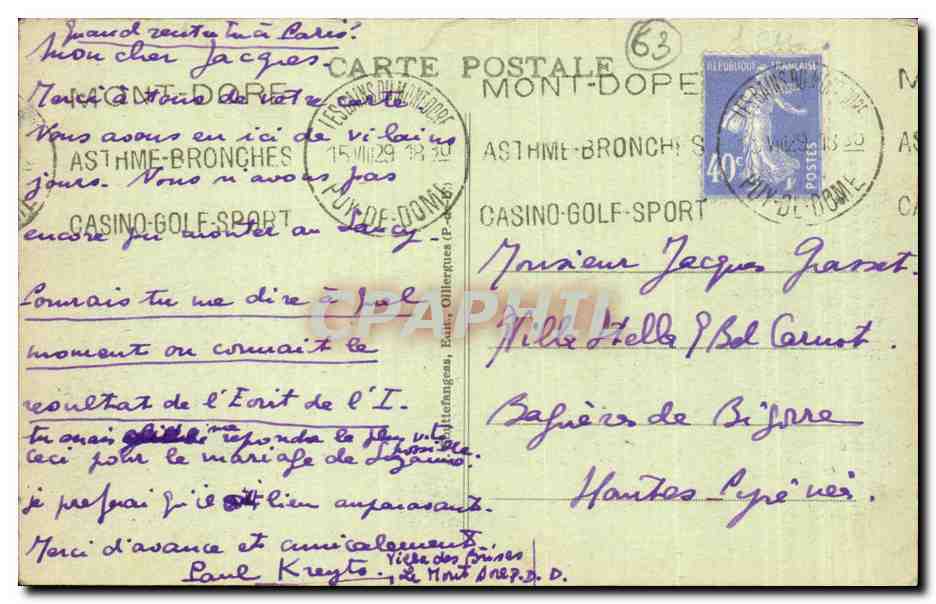 Quand rentres tu à Paris?
mon cher Jacques.
CARTE POSTALE
63
Merci à tous de votre carte
Vous avons eu ici de vilains
jours. Nous n'avons pas
encore pu monter au Sancy.
Pourrais tu me dire à quel
moment on connait le
résultat de l'Ecrit de l'I.
tu me reponds le plus vite
possible.
ceci pour le mariage de
je prefererai qu'il lieu auparavant.
Merci d'avance et amicalement
Paul Villa des Brises
Le Mont Dore P.D.D.
MONT-DORE
ASTHME-BRONCHES
CASINO-GOLF-SPORT
LES BAINS DU MONT-DORE
15 VIII 29 18 30
PUY-DE-DOME
MONT-DORE
ASTHME-BRONCHES
CASINO-GOLF-SPORT
REPUBLIQUE FRANÇAISE
40c
POSTES
LES BAINS DU MONT-DORE
VIII 29 18 30
PUY-DE-DOME
Édit., Olliergues (P.-de-D.)
CPAPHIL
Monsieur Jacques Grasset.
Villa Stella 9 Bd Carnot.
Bagnères de Bigorre
Hautes Pyrénées.